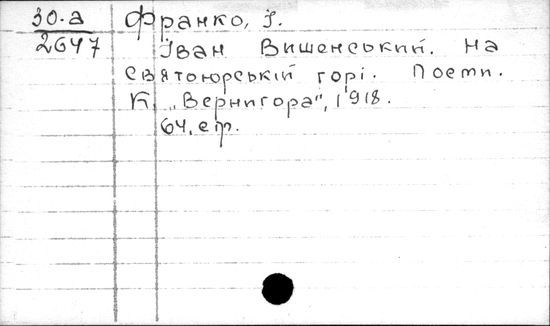 30.а Франко, І.
2647 Іван Вишенський. На
Святоюрській горі. Поеми.
К. „Вернигора", 1918.
64, ст.